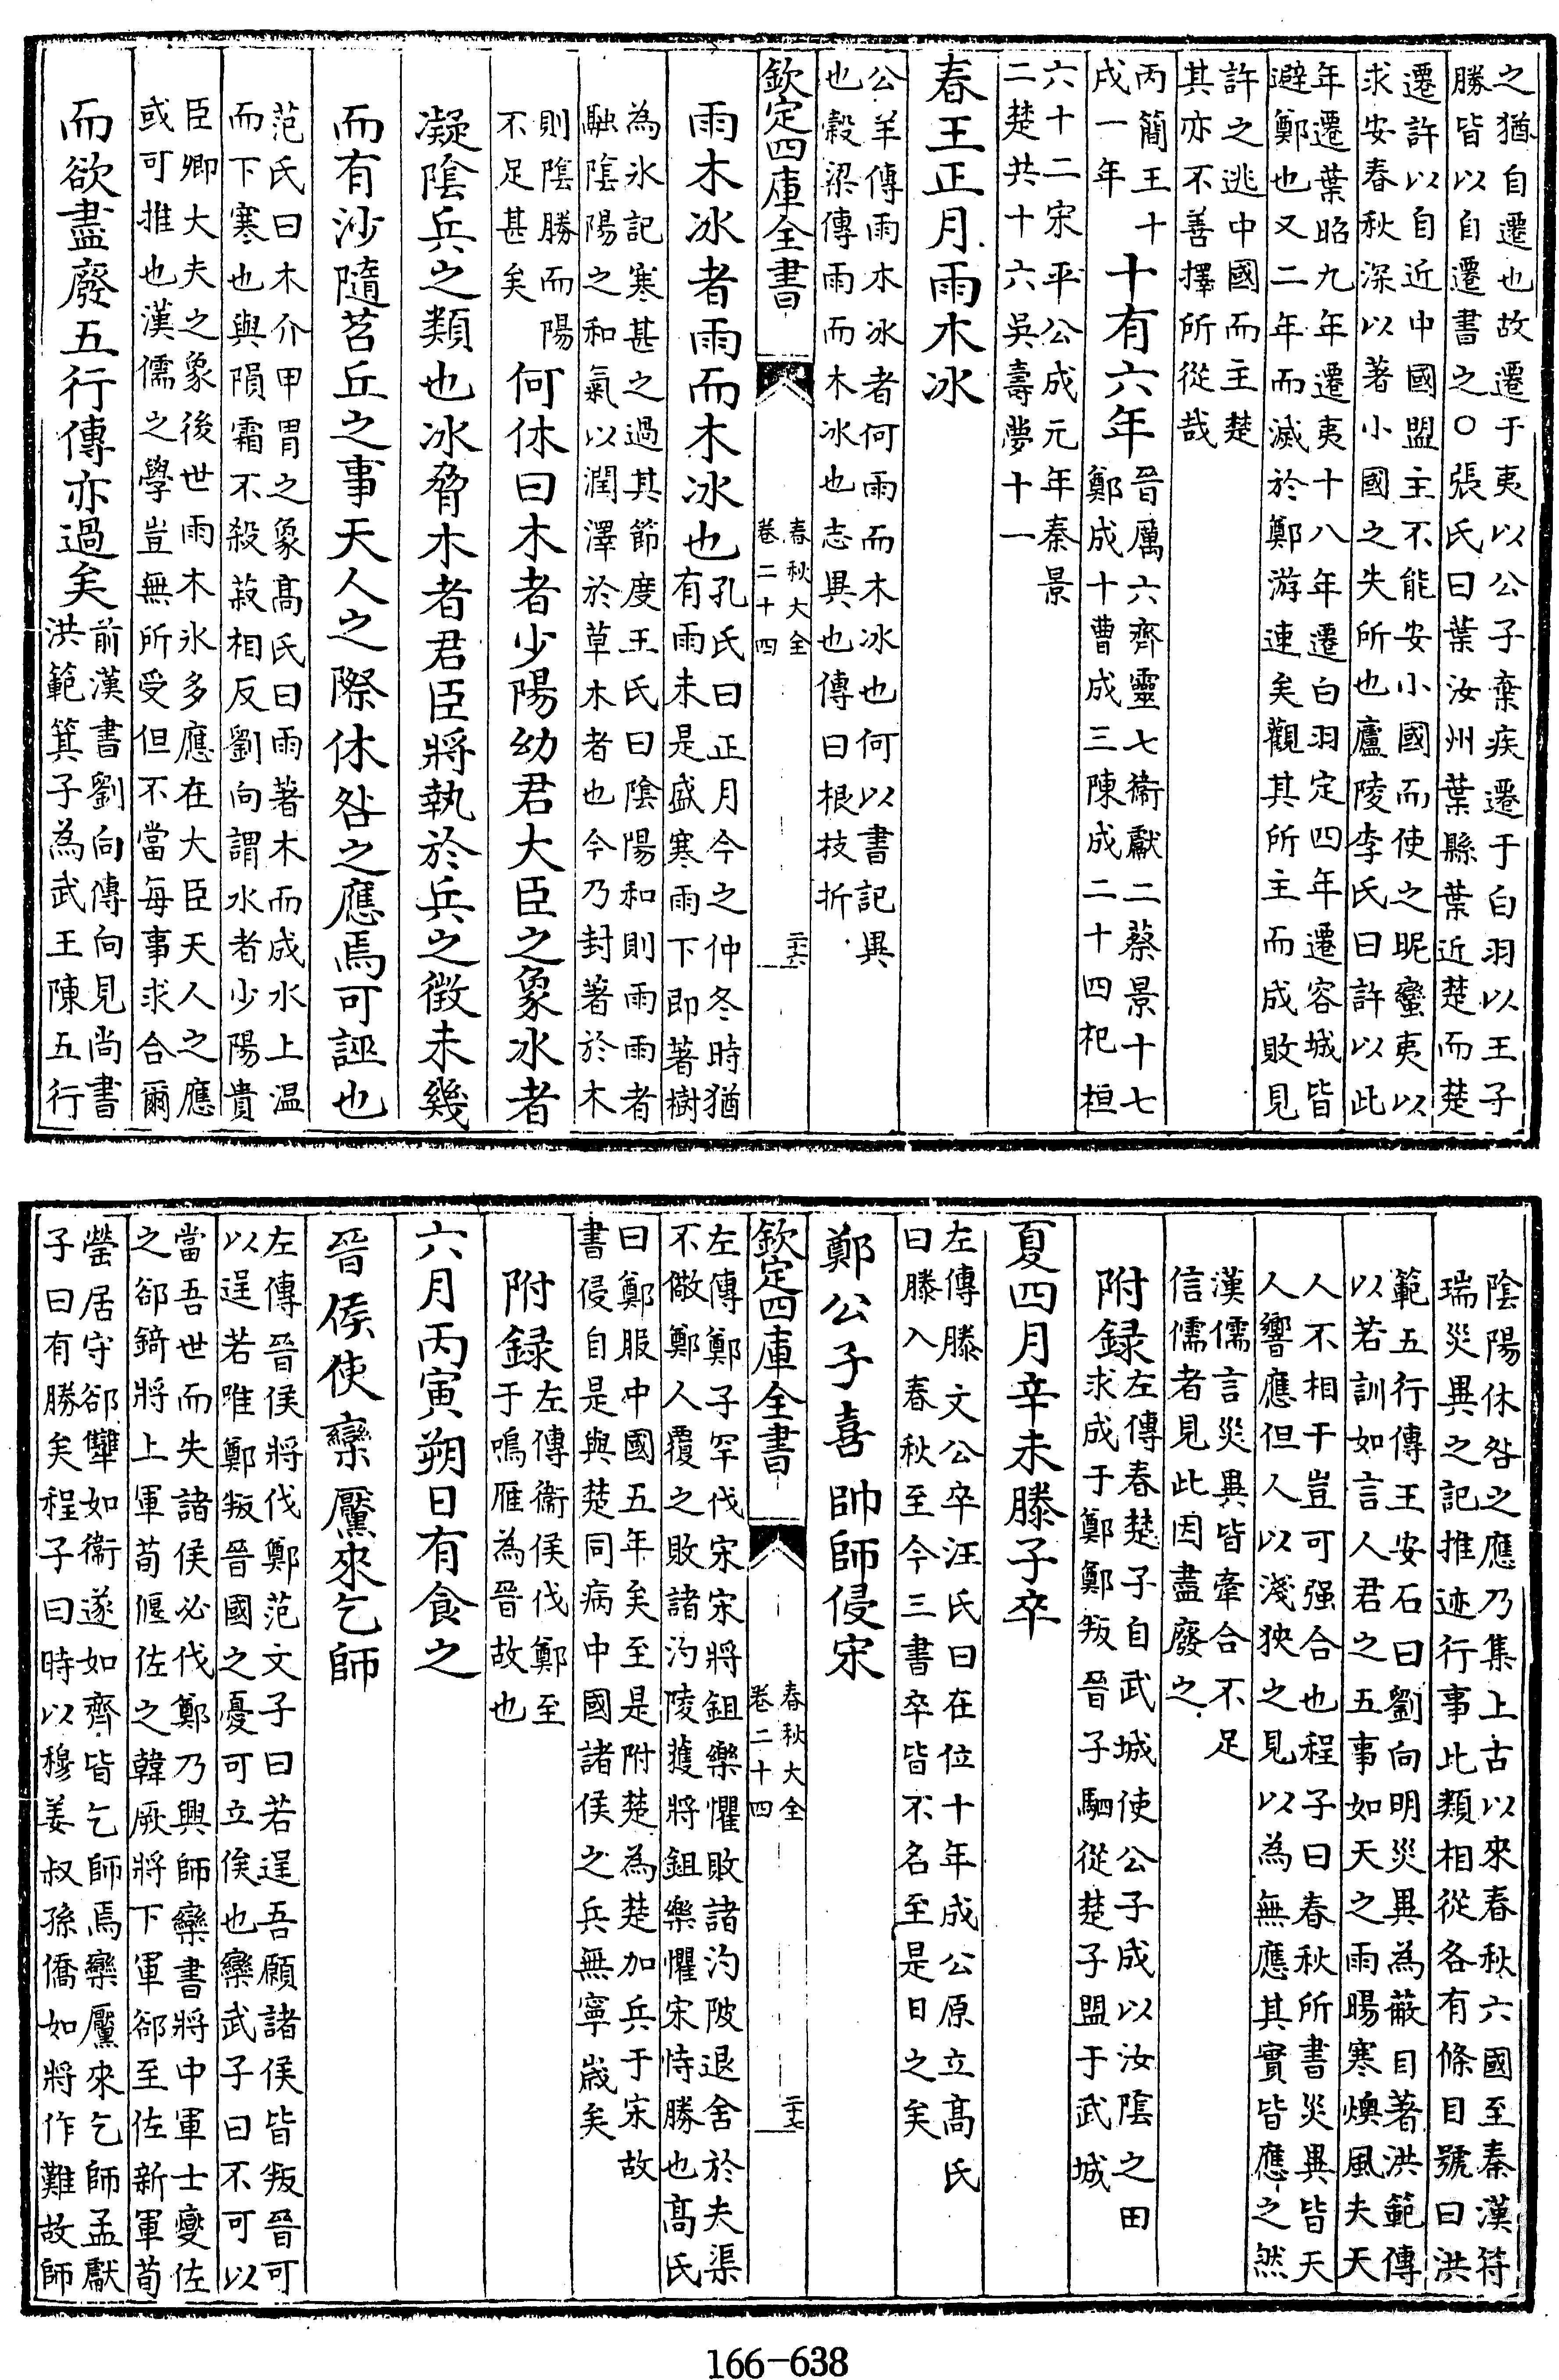 之猶自遷也故遷于夷以公子棄疾遷于白羽以王子
勝皆以自遷書之○張氏曰葉汝州葉縣葉近楚而楚
遷許以自近中國盟主不能安小國而使之昵蠻夷以
求安春秋深以著小國之失所也廬陵李氏曰許以此
年遷葉昭九年遷夷十八年遷白羽定四年遷容城皆
避鄭也又二年而滅於鄭游連矣觀其所主而成敗見
許之逃中國而主楚
其亦不善擇所從哉
丙簡王十
戌一年
十有六年
晉厲六齊靈七衞獻二蔡景十七
鄭成十曹成三陳成二十四杞桓
六十二宋平公成元年秦景
二楚共十六吳壽夢十一
春王正月雨木冰
公羊傳雨木冰者何雨而木冰也何以書記異
也穀梁傳雨而木冰也志異也傳曰根枝折
欽定四庫全書
春秋大全
卷二十四
二十六
雨木冰者雨而木冰也
孔氏曰正月今之仲冬時猶
有雨未是盛寒雨下即著樹
為氷記寒甚之過其節度王氏曰陰陽和則雨雨者
融陰陽之和氣以潤澤於草木者也今乃封著於木
則陰勝而陽
不足甚矣
何休曰木者少陽幼君大臣之象冰者
凝陰兵之類也冰脅木者君臣將執於兵之徵未幾
而有沙隨苕丘之事天人之際休咎之應焉可誣也
范氏曰木介甲胃之象髙氏曰雨著木而成氷上温
而下寒也與隕霜不殺菽相反劉向謂水者少陽貴
臣卿大夫之象後世雨木氷多應在大臣天人之應
或可推也漢儒之學豈無所受但不當每事求合爾
而欲盡廢五行傳亦過矣
前漢書劉向傳向見尚書
洪範箕子為武王陳五行
陰陽休咎之應乃集上古以來春秋六國至秦漢符
瑞災異之記推迹行事比類相從各有條目號曰洪
範五行傳王安石曰劉向明災異為蔽目著洪範傳
以若訓如言人君之五事如天之雨暘寒燠風夫天
人不相干豈可强合也程子曰春秋所書災異皆天
人響應但人以淺狹之見以為無應其實皆應之然
漢儒言災異皆牽合不足
信儒者見此因盡廢之
附録
左傳春楚子自武城使公子成以汝陰之田
求成于鄭鄭叛晉子駟從楚子盟于武城
夏四月辛未滕子卒
左傳滕文公卒汪氏曰在位十年成公原立髙氏
曰滕入春秋至今三書卒皆不名至是日之矣
鄭公子喜帥師侵宋
欽定四庫全書
春秋大全
卷二十四
二十七
左傳鄭子罕伐宋宋將鉏樂懼敗諸汋陂退舍於夫渠
不儆鄭人覆之敗諸汋陵獲將鉏樂懼宋恃勝也髙氏
曰鄭服中國五年矣至是附楚為楚加兵于宋故
書侵自是與楚同病中國諸侯之兵無寧歳矣
附録
左傳衞侯伐鄭至
于鳴雁為晉故也
六月丙寅朔日有食之
晉侯使欒黶來乞師
左傳晉侯將伐鄭范文子曰若逞吾願諸侯皆叛晉可
以逞若唯鄭叛晉國之憂可立俟也欒武子曰不可以
當吾世而失諸侯必伐鄭乃興師欒書將中軍士燮佐
之郤錡將上軍荀偃佐之韓厥將下軍郤至佐新軍荀
罃居守郤犫如衞遂如齊皆乞師焉欒黶來乞師孟獻
子曰有勝矣程子曰時以穆姜叔孫僑如將作難故師
166-638